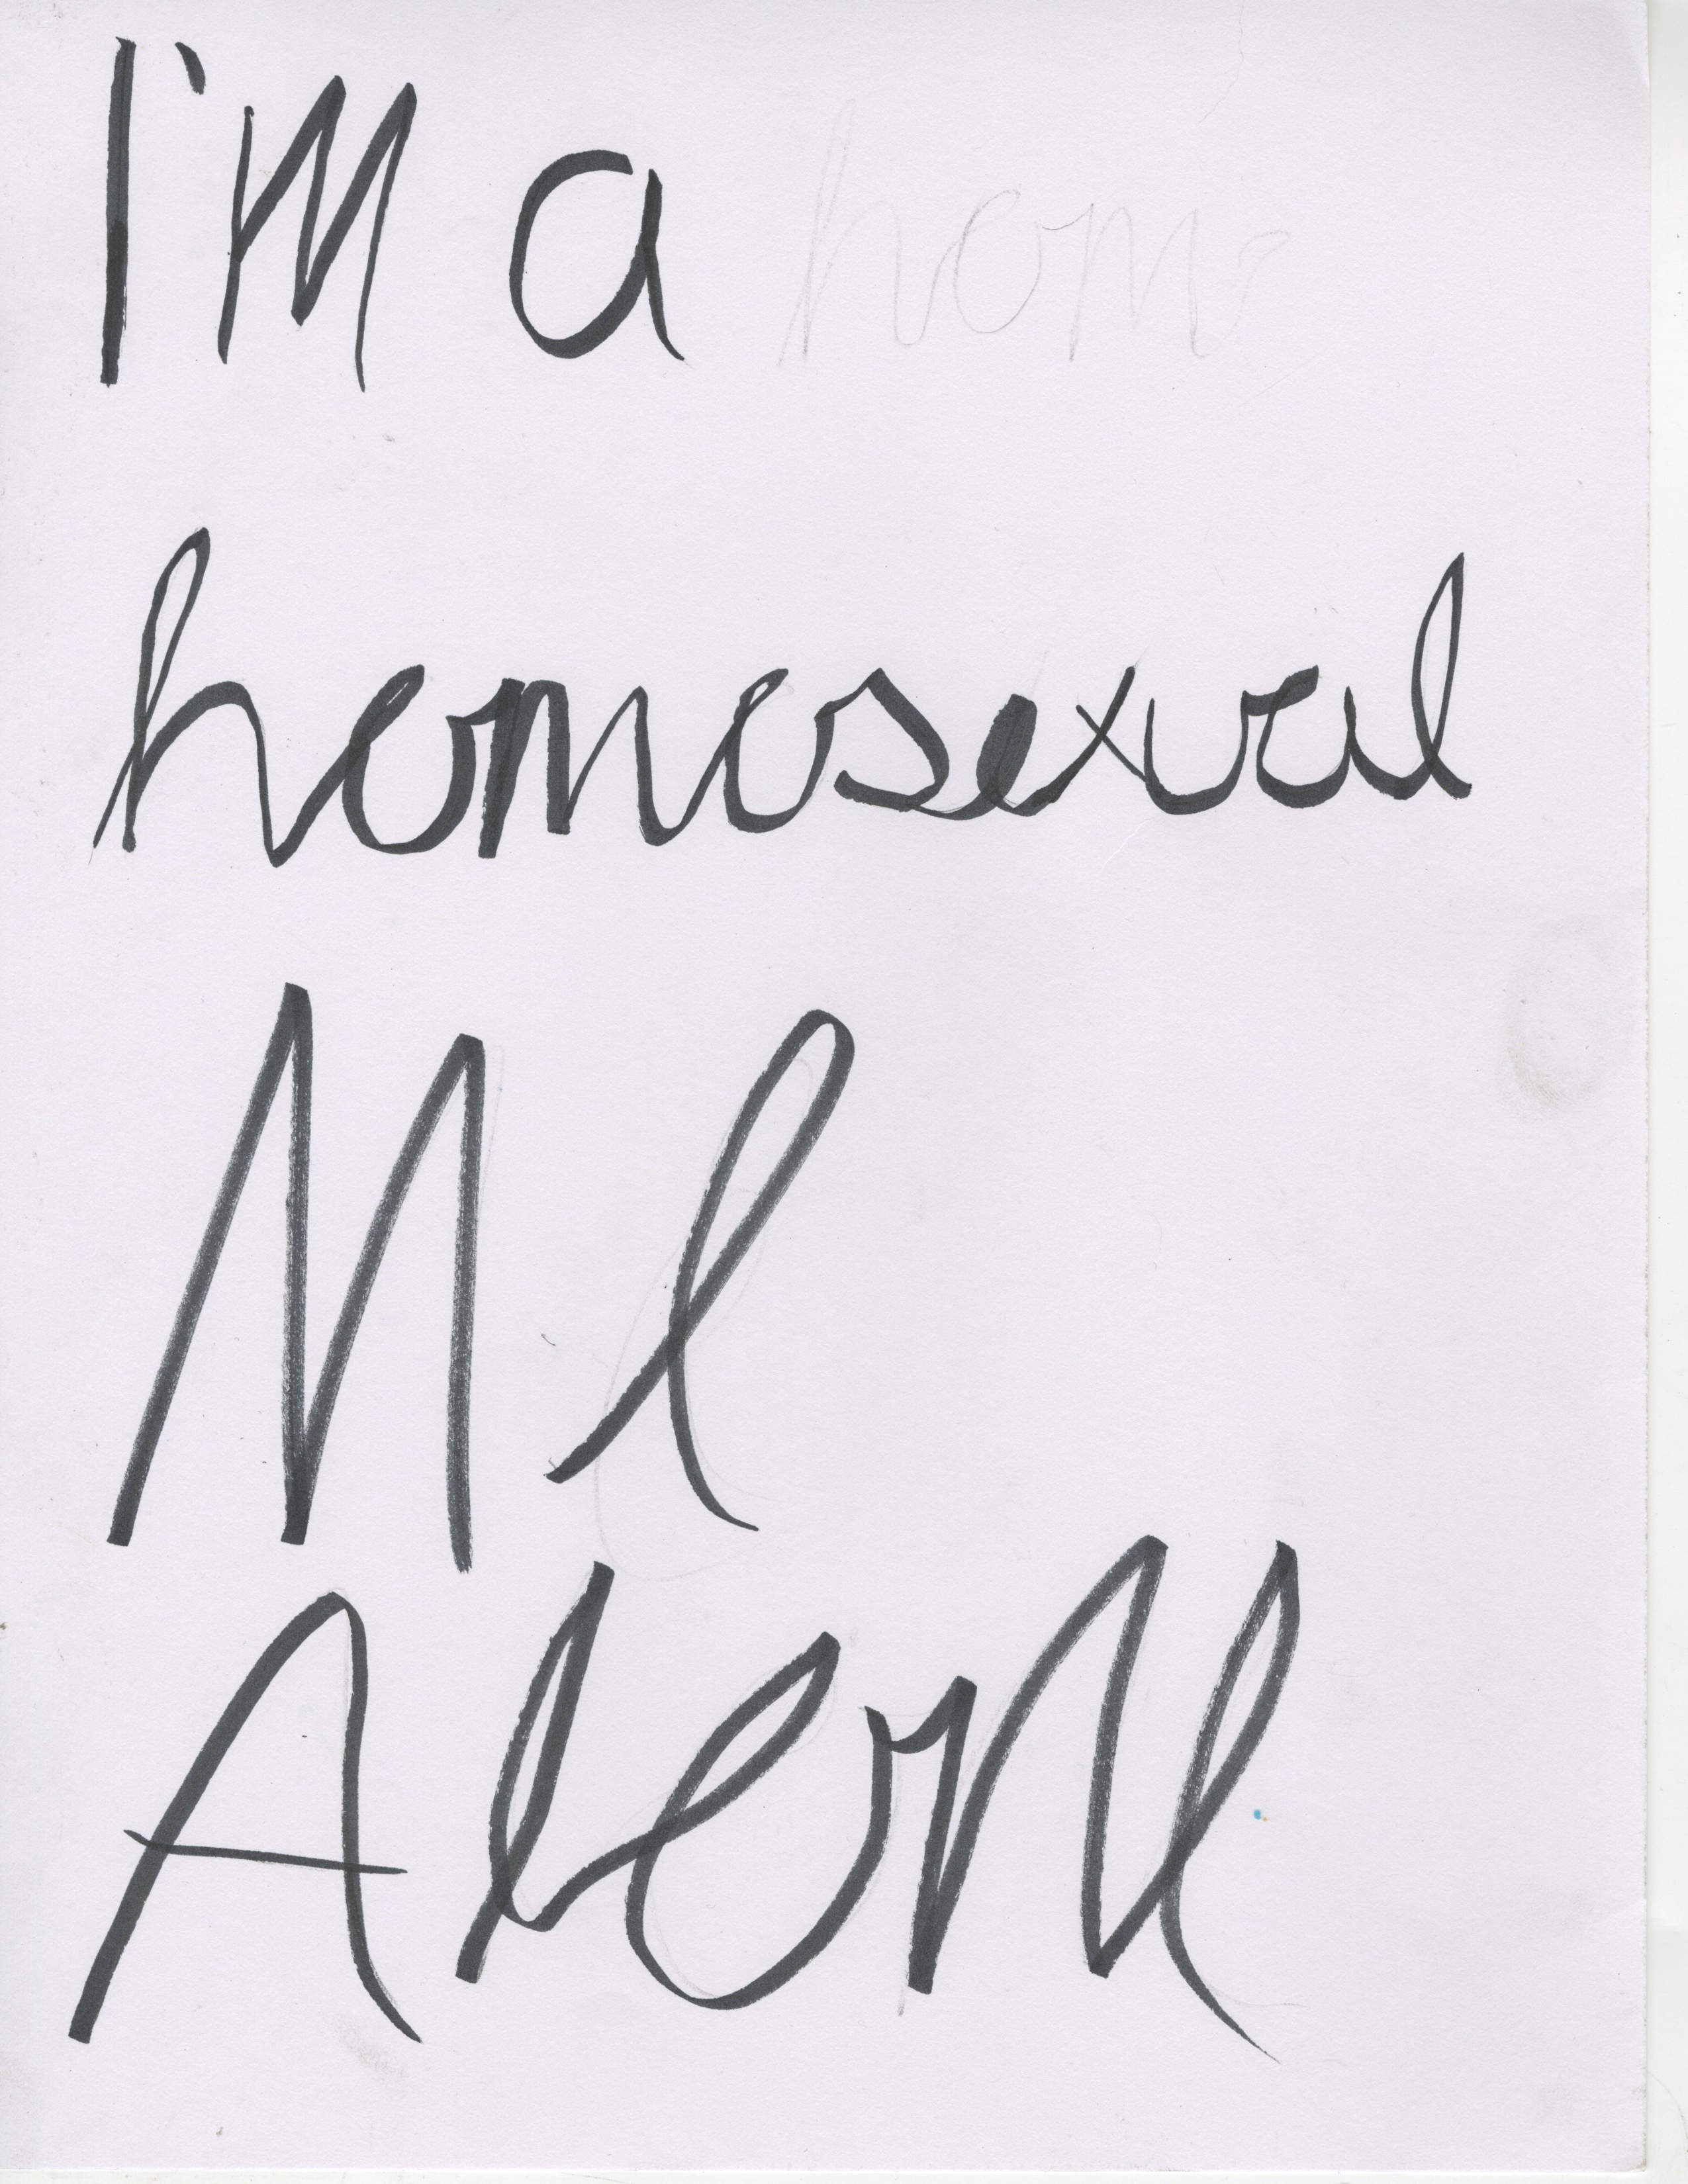 I'm a hom
homosexual
Me
Alone